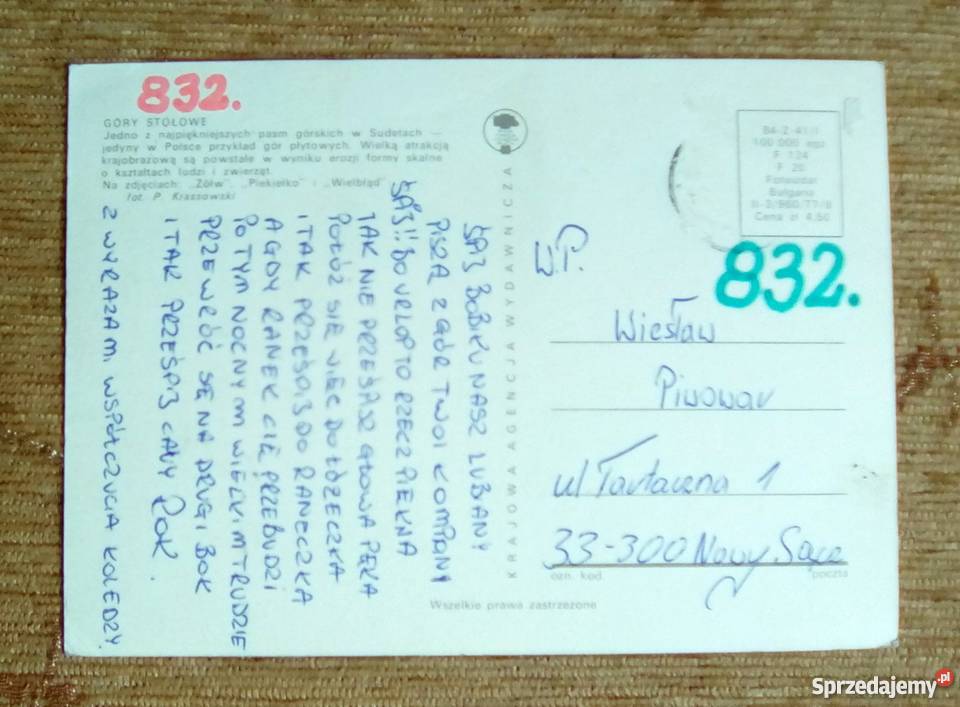 832.
GÓRY STOŁOWE
Jedno z najpiękniejszych pasm górskich w Sudetach —
jedyny w Polsce przykład gór płytowych. Wielką atrakcją
krajobrazową są powstałe w wyniku erozji formy skalne
o kształtach ludzi i zwierząt.
Na zdjęciach: „Żółw", „Piekiełko" i „Wielbłąd"
fot. P. Krassowski
ŚPIJ BOBIKU NASZ LUBANY
PISZĄ Z GÓR TWOI KOMPANY
ŚPIJ!! BO URLOP TO RZECZ PIĘKNA
JAK NIE PRZEŚPISZ GŁOWA PĘKA
POŁÓŻ SIĘ WIĘC DO ŁÓŻECZKA
I TAK PRZEŚPIJ DO RANECZKA
A GDY RANEK CIĘ PRZEBUDZI
PO TYM NOCNYM WIELKIM TRUDZIE
PRZEWRÓĆ SIĘ NA DRUGI BOK
I TAK PRZEŚPIJ CAŁY ROK.
Z WYRAZAMI WSPÓŁCZUCIA KOLEDZY.
KRAJOWA AGENCJA WYDAWNICZA
Wszelkie prawa zastrzeżone
84-Z-41/I
100 000 egz
F 124
F 20
Fotowidar
Bułgaria
II-3/960/77/8
Cena zł 4,50
832.
W.P.
Wiesław
Piwowar
ul Tartaczna 1
33-300 Nowy Sącz
ozn. kod. poczta
Sprzedajemy.pl